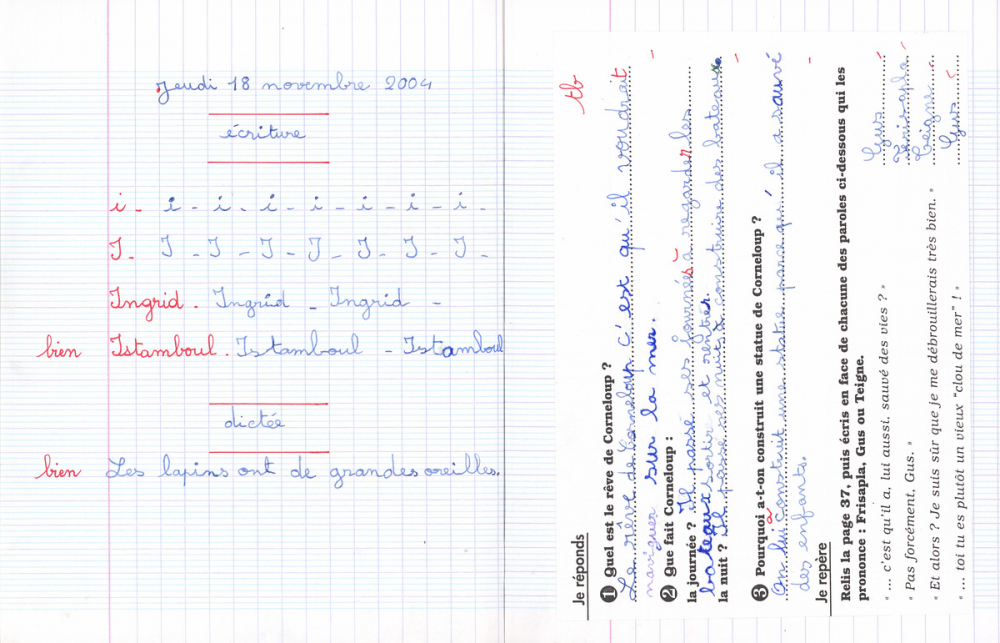 Jeudi 18 novembre 2004
écriture
i - i - i - i - i - i - i - i -
I - I - I - I - I - I - I - I -
Ingrid - Ingrid - Ingrid -
bien Istamboul. Istamboul - Istamboul
dictée
bien Les lapins ont de grandes oreilles.
tb
Je réponds
1 Quel est le rêve de Corneloup ?
Le rêve de Corneloup c'est qu'il voudrait
naviguer sur la mer.
2 Que fait Corneloup :
la journée ? Il passe ses journées à regarder les
bateaux sortir et rentrer.
la nuit ? Il passe ses nuits à construire des bateaux
3 Pourquoi a-t-on construit une statue de Corneloup ?
On lui a construit une statue parce qu'il a sauvé
des enfants.
Je repère
Relis la page 37, puis écris en face de chacune des paroles ci-dessous qui les
prononce : Frisapla, Gus ou Teigne.
" ... c'est qu'il a, lui aussi, sauvé des vies ? " Gus
" Pas forcément, Gus. "
" Et alors ? Je suis sûr que je me débrouillerais très bien. " Teigne
" ... toi tu es plutôt un vieux "clou de mer" ! " Gus